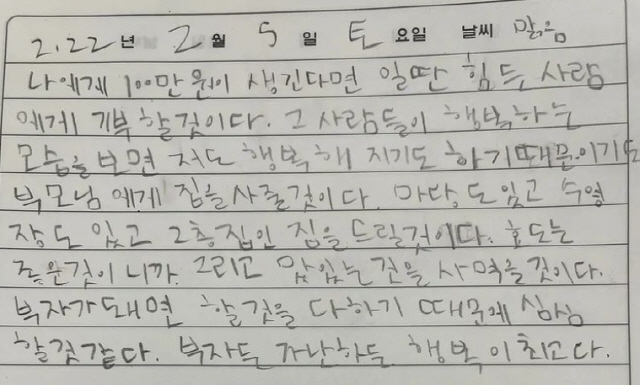 2.22년 2월 5일 토요일 날씨 맑음
나에게 100만원이 생긴다면 일딴 힘든 사람
에게 기부 할것이다. 그 사람들이 행복하는
모습을 보면 저도 행복해 지기도 하기때문이기도
부모님에게 집을 사줄것이다. 마당도 있고 수영
장도 있고 2층집인 집을 드릴것이다. 효도는
좋은것이니까. 그리고 맜있는것을 사먹을것이다.
부자가 돼면 할것을 다하기 때문에 심심
할것같다. 부자든 가난하든 행복이최고다.